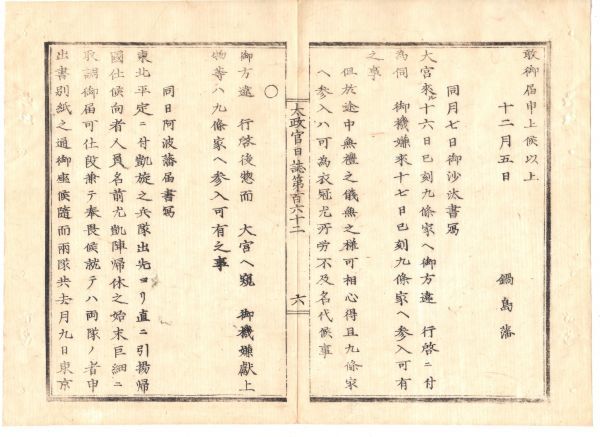 敢御届申上候以上
十二月五日
鍋島藩
同月七日御沙汰書寫
大宮來ル十六日已刻九條家ヘ御方違 行啓ニ付
為伺 御機嫌來十七日已刻九條家ヘ参入可有
之事
但於途中無禮之儀無之様可相心得且九條家
ヘ参入ハ可為衣冠尤所労不及名代候事
太政官日誌第百六十二
六
○
御方違 行啓後惣而 大宮ヘ窺 御機嫌獻上
物等ハ九條家ヘ参入可有之事
同日阿波藩届書寫
東北平定ニ付凱旋之兵隊出先ヨリ直ニ引揚歸
國仕候向者人員名前尤凱陣歸休之始末巨細ニ
取調御届可仕段兼テ奉畏候就テハ両隊ノ者申
出書別紙之通御座候随而兩隊共去月九日東京